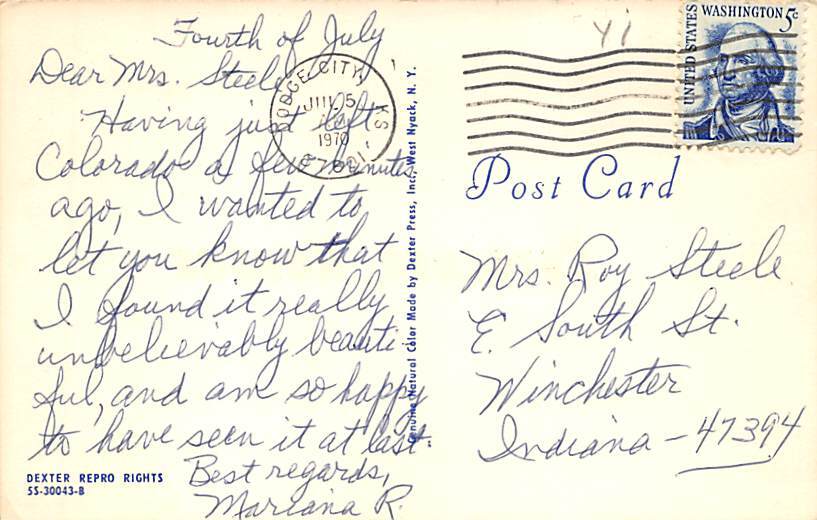 Fourth of July
Dear Mrs. Steele
Having just left
Colorado a few minutes
ago, I wanted to
let you know that
I found it really
unbelievably beauti
ful, and am so happy
to have seen it at last.
Best regards,
Mariana R.
DEXTER REPRO RIGHTS
SS-30043-B
Genuine Natural Color Made by Dexter Press, Inc. West Nyack, N. Y.
DODGE CITY, KS
JUL 5
1970
67801
Y i
UNITED STATES
WASHINGTON 5c
Post Card
Mrs. Roy Steele
E. South St.
Winchester
Indiana - 47394